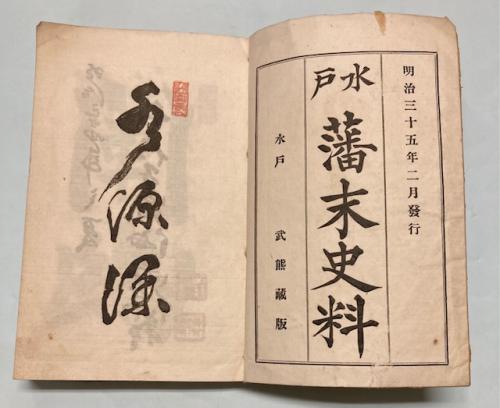 明治三十五年二月發行
水戸
藩末史料
水戸 武熊藏版
源深